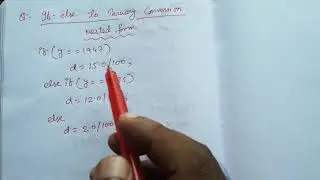 Q- If-else To Ternary Conversion
Nested form
if (y == 1947)
d = 15.0/100;
else if (y ==
d = 12.0/100;
else
d = 2.0/100